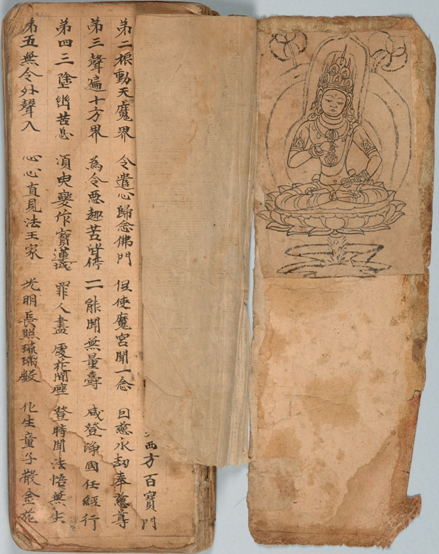 西方百寶門
第二振動天魔界 令遣心歸念佛門 但使魔宮聞一念 因慈永劫奉慈尊
第三聲遍十方界 為令惡趣苦皆停 一能聞無量壽 咸登淨國任經行
第四三塗幽苦息 須臾變作寶蓮 罪人盡處花開 登時聞法悟無生
第五無令外聲入 心心直見法王家 光明長照琉璃殿 化生童子散金花